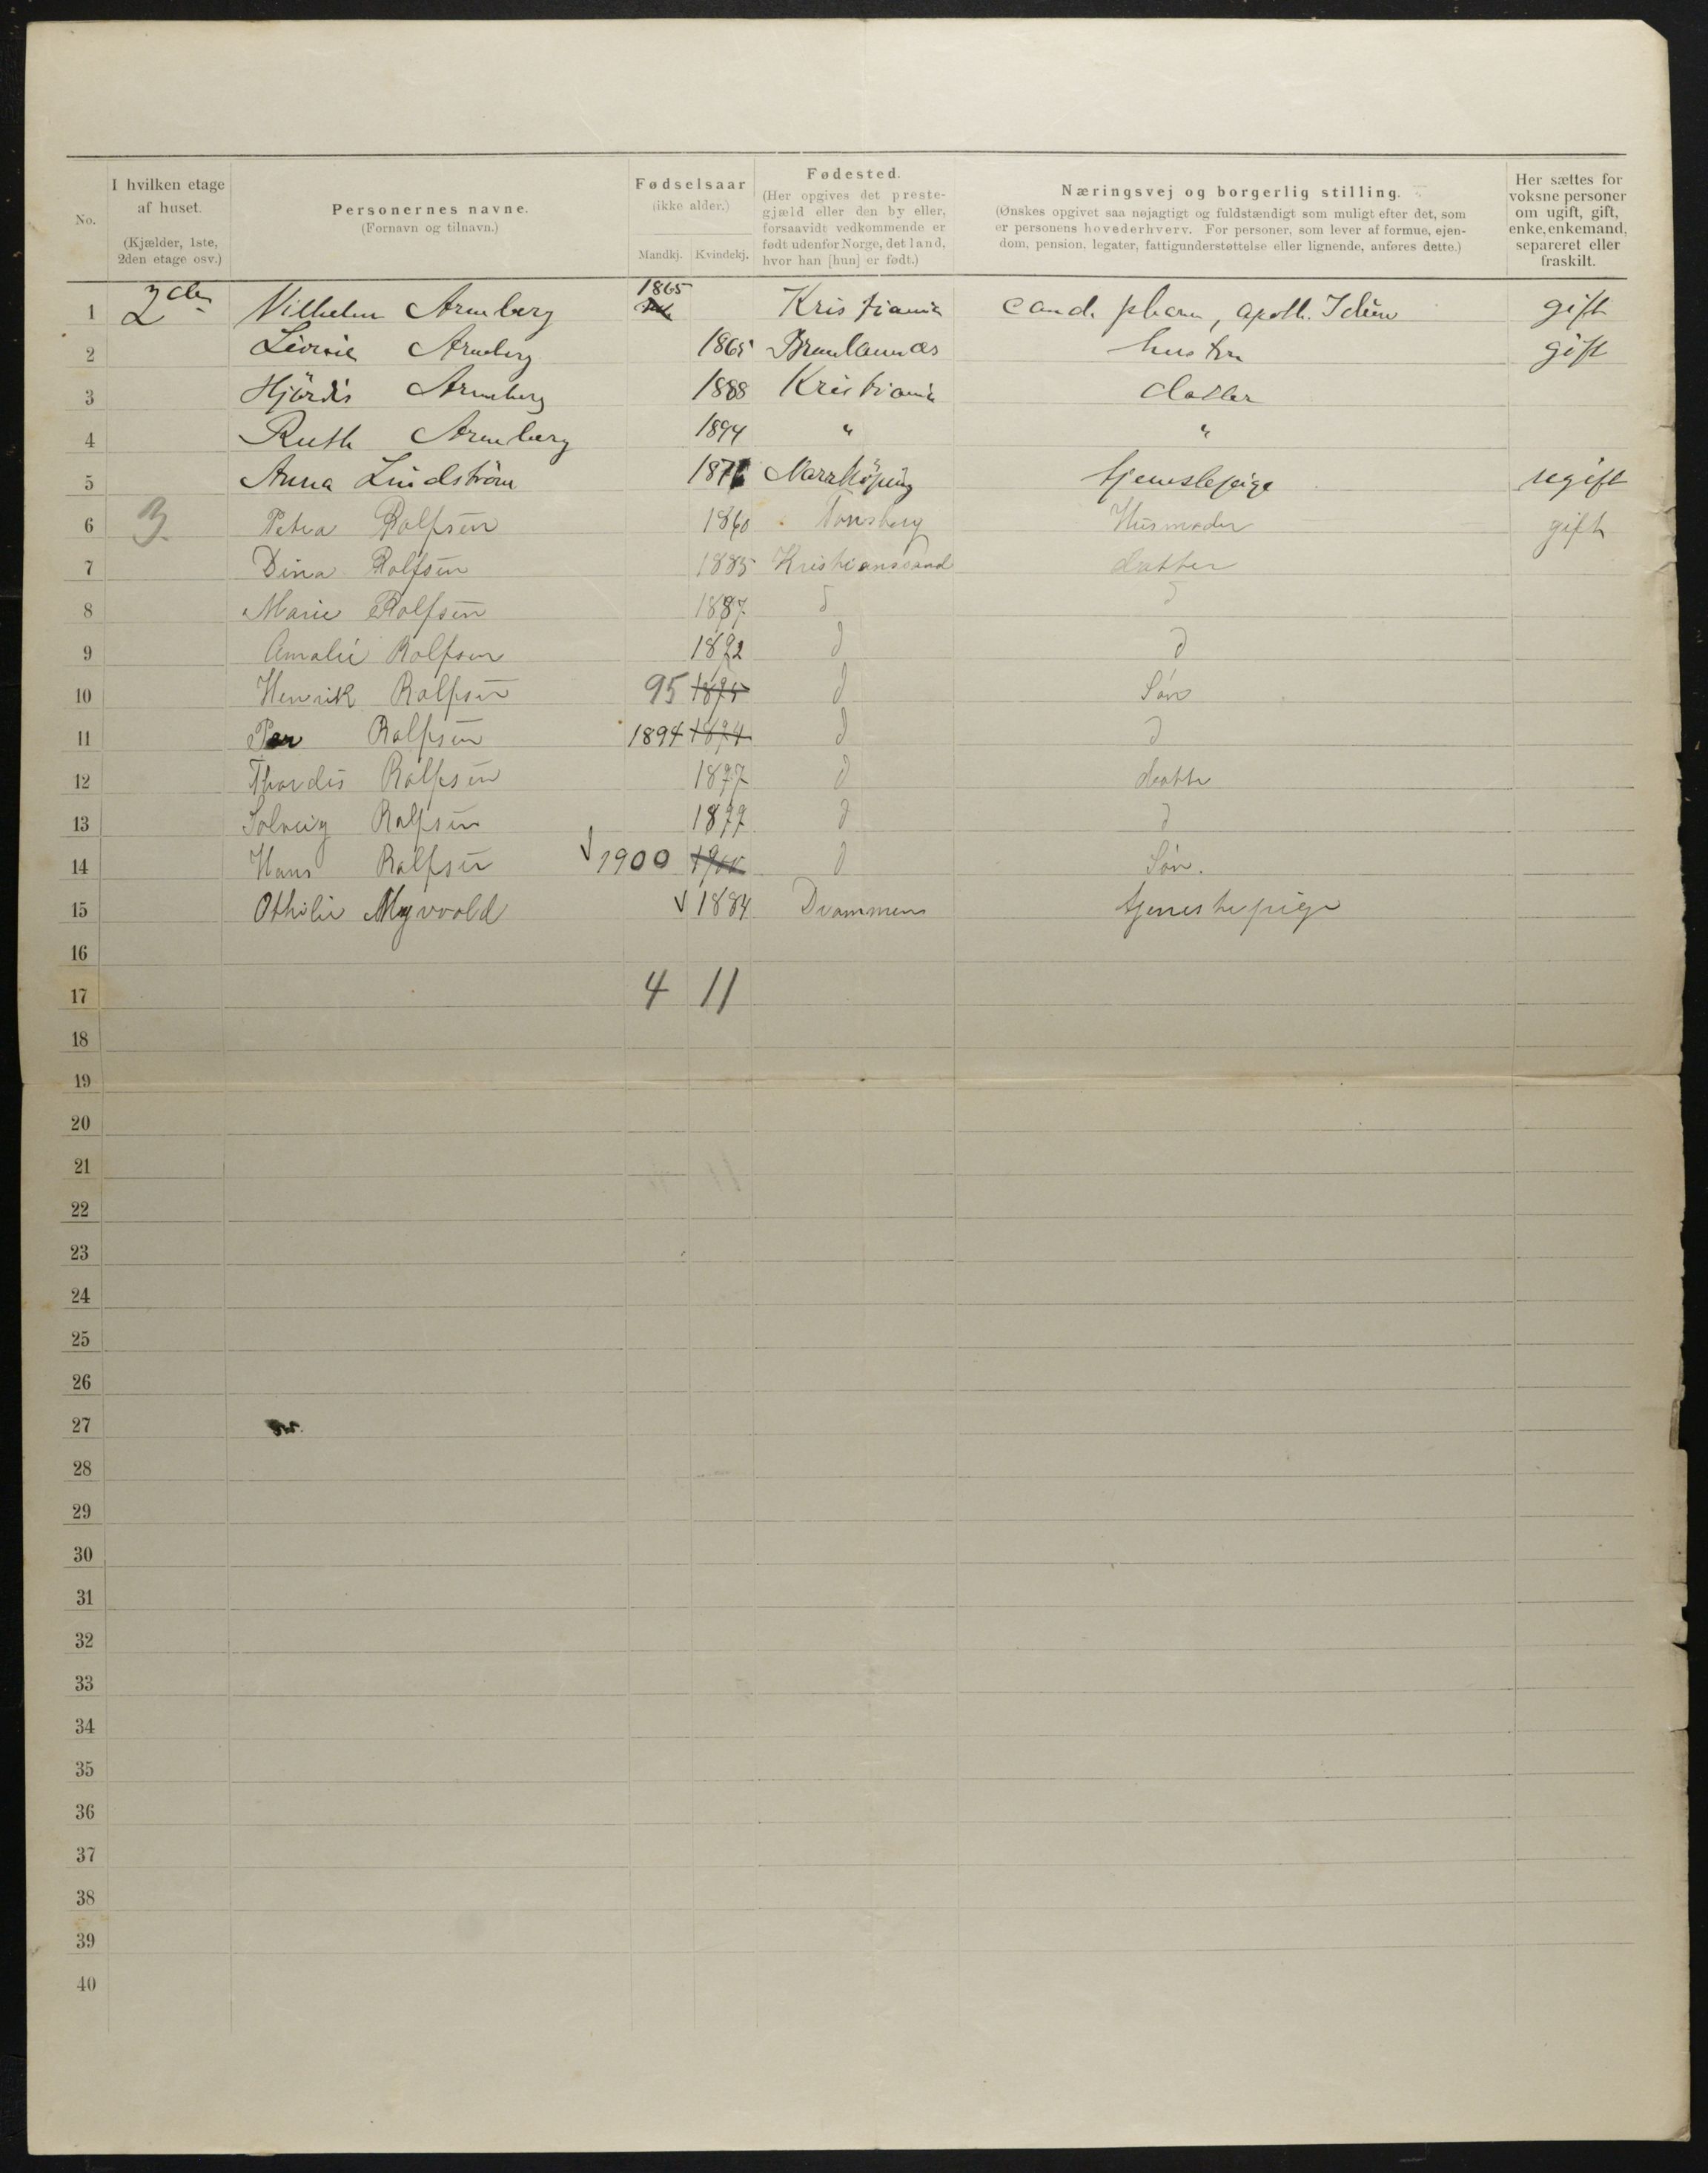 No.
I hvilken etage af huset. (Kjælder, 1ste, 2den etage osv.)
Personernes navne. (Fornavn og tilnavn.)
Fødselsaar (ikke alder.) Mandkj. Kvindekj.
Fødested. (Her opgives det prestegjæld eller den by eller, forsaavidt vedkommende er født udenfor Norge, det land, hvor han [hun] er født.)
Næringsvej og borgerlig stilling. (Ønskes opgivet saa nøjagtigt og fuldstændigt som muligt efter det, som er personens hovederhverv. For personer, som lever af formue, ejendom, pension, legater, fattigunderstøttelse eller lignende, anføres dette.)
Her sættes for voksne personer om ugift, gift, enke, enkemand, separeret eller fraskilt.
1 2den Vilhelm Arneberg 1865 Kristiania cand. pharm, apoth. gift
2 Arneberg 1865 Brunlanæs hustru gift
3 Hjördis Arneberg 1888 Kristiania datter
4 Ruth Arneberg 1894 " "
5 Anna Lindström 187 Norrköping tjenestepige ugift
6 3 Petra Rolfsen 1860 Tønsberg Husmoder gift
7 Dina Rolfsen 1885 Kristianssand datter
8 Marie Rolfsen 1887 d d
9 Amalie Rolfsen 1892 d d
10 Henrik Rolfsen 95 1895 d Søn
11 Per Rolfsen 1894 1894 d d
12 Thordis Rolfsen 1897 d datter
13 Solveig Rolfsen 1899 d d
14 Hans Rolfsen 1900 d Søn.
15 Othilie Myrvold 1884 Drammen tjenestepige
16
17 4 11
18
19
20
21
22
23
24
25
26
27
28
29
30
31
32
33
34
35
36
37
38
39
40